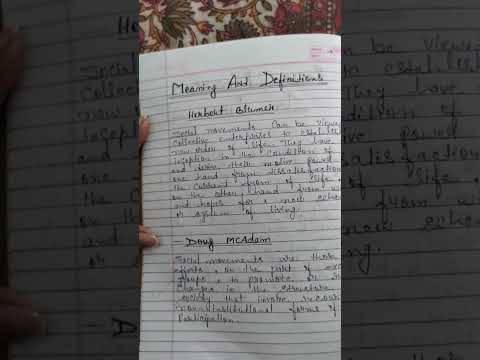 Meaning And Definitions
Herbert Blumer
Social movements Can be viewed
Collective to establish
new order of life. They have
Inception in the Condition of
and derive their motive power
one hand from dissatisfaction
the Current form of life
on the other hand from
and hopes for a new
or system of living.
— Doug McAdam
Social movements are those
efforts, on the part of
groups, to promote or
changes in the structure
society that involve
noninstitutional forms of
Participation.